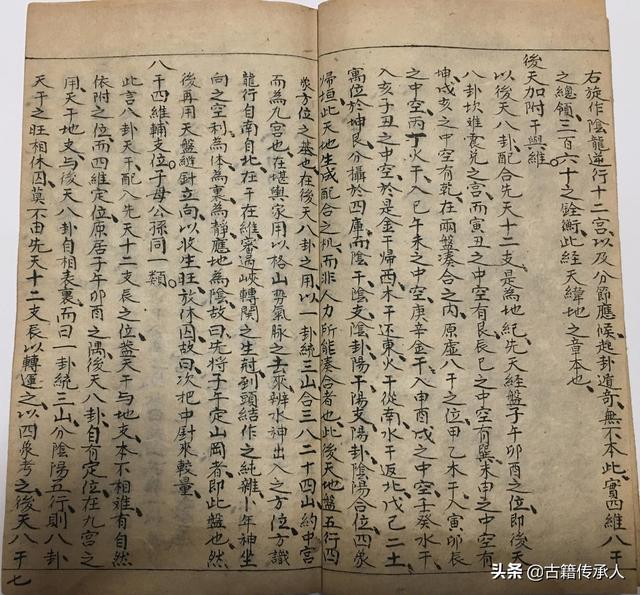 右旋作陰龍逆行十二宮以及分節應候起卦遁奇無不本此實四維八干
之總領三百六十之銓衡此經天緯地之章本也
後天加附干與維
以後天八卦配合先天十二支是為地紀先天經盤子午卯酉之位即後天
八卦坎離震兌之宮而寅丑之中空有艮辰巳之中空有巽未申之中空有
坤戌亥之中空有乾在兩盤湊合之內原虛八干之位甲乙木干入寅卯辰
之中空丙丁火干入巳午未之中空庚辛金干入申酉戌之中空壬癸水干
入亥子丑之中空於是金干歸西木干還東火干從南水干返北戊己二土
寓位於坤艮分攝於四庫而陰干陰支陰卦陽干陽支陽卦陰陽合位四象
歸垣此天地生成配合之机而非人力所能湊合者也此後天地盤五行四
象方位之基也在後天八卦之用以一卦統三山合三八二十四山約中宮
而為九宮也在堪輿家用以格山勢氣脉之去來辨水神出入之方位方識
龍行自南自北在干在維察過峽轉関之生尅到頭結作之純雜卜年神坐
向之空利為体為裏為靜應地為陰故曰先將子午定山岡者即此盤也然
後再用天盤縫針立向以收生旺放休囚故曰次把中針來較量
八干四維輔支位子母公孫同一類
此言八卦天干配入先天十二支辰之位蓋天干與地支本不相離有自然
依附之位而四維定位原居子午卯酉之隅後天八卦自有定位在九宮之
用天干地支與後天八卦自相表裏而曰一卦統三山分陰陽五行則八卦
天干之旺相休囚莫不由先天十二支辰以轉運之以四象考之後天八干
七
头条 @古籍传承人